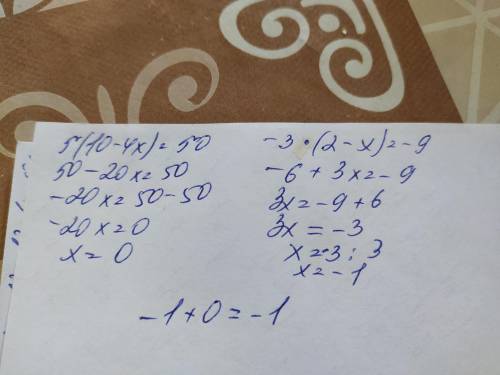 5(10-4x)=50
50-20x=50
-20x=50-50
-20x=0
x=0
-3·(2-x)=-9
-6+3x=-9
3x=-9+6
3x=-3
x=-3:3
x=-1
-1+0=-1